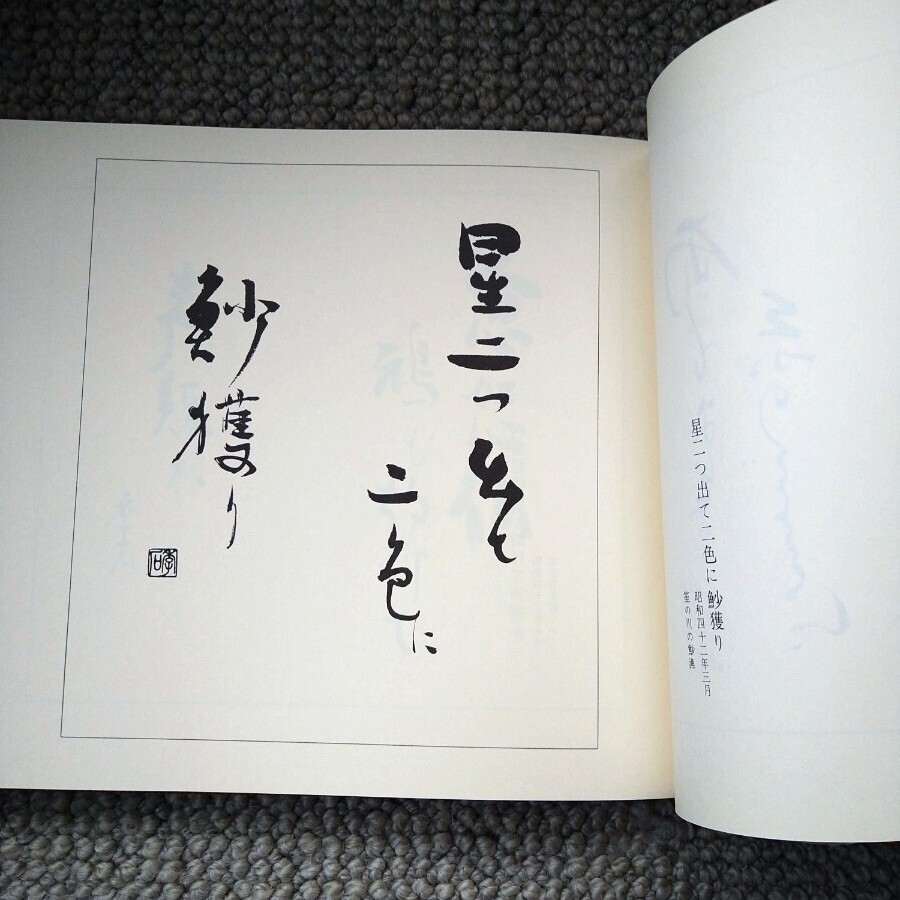 星二つ出て二色に魦獲り
昭和四十二年三月
笙の川の魦漁
星二つ出て
二色に
魦獲り
季石